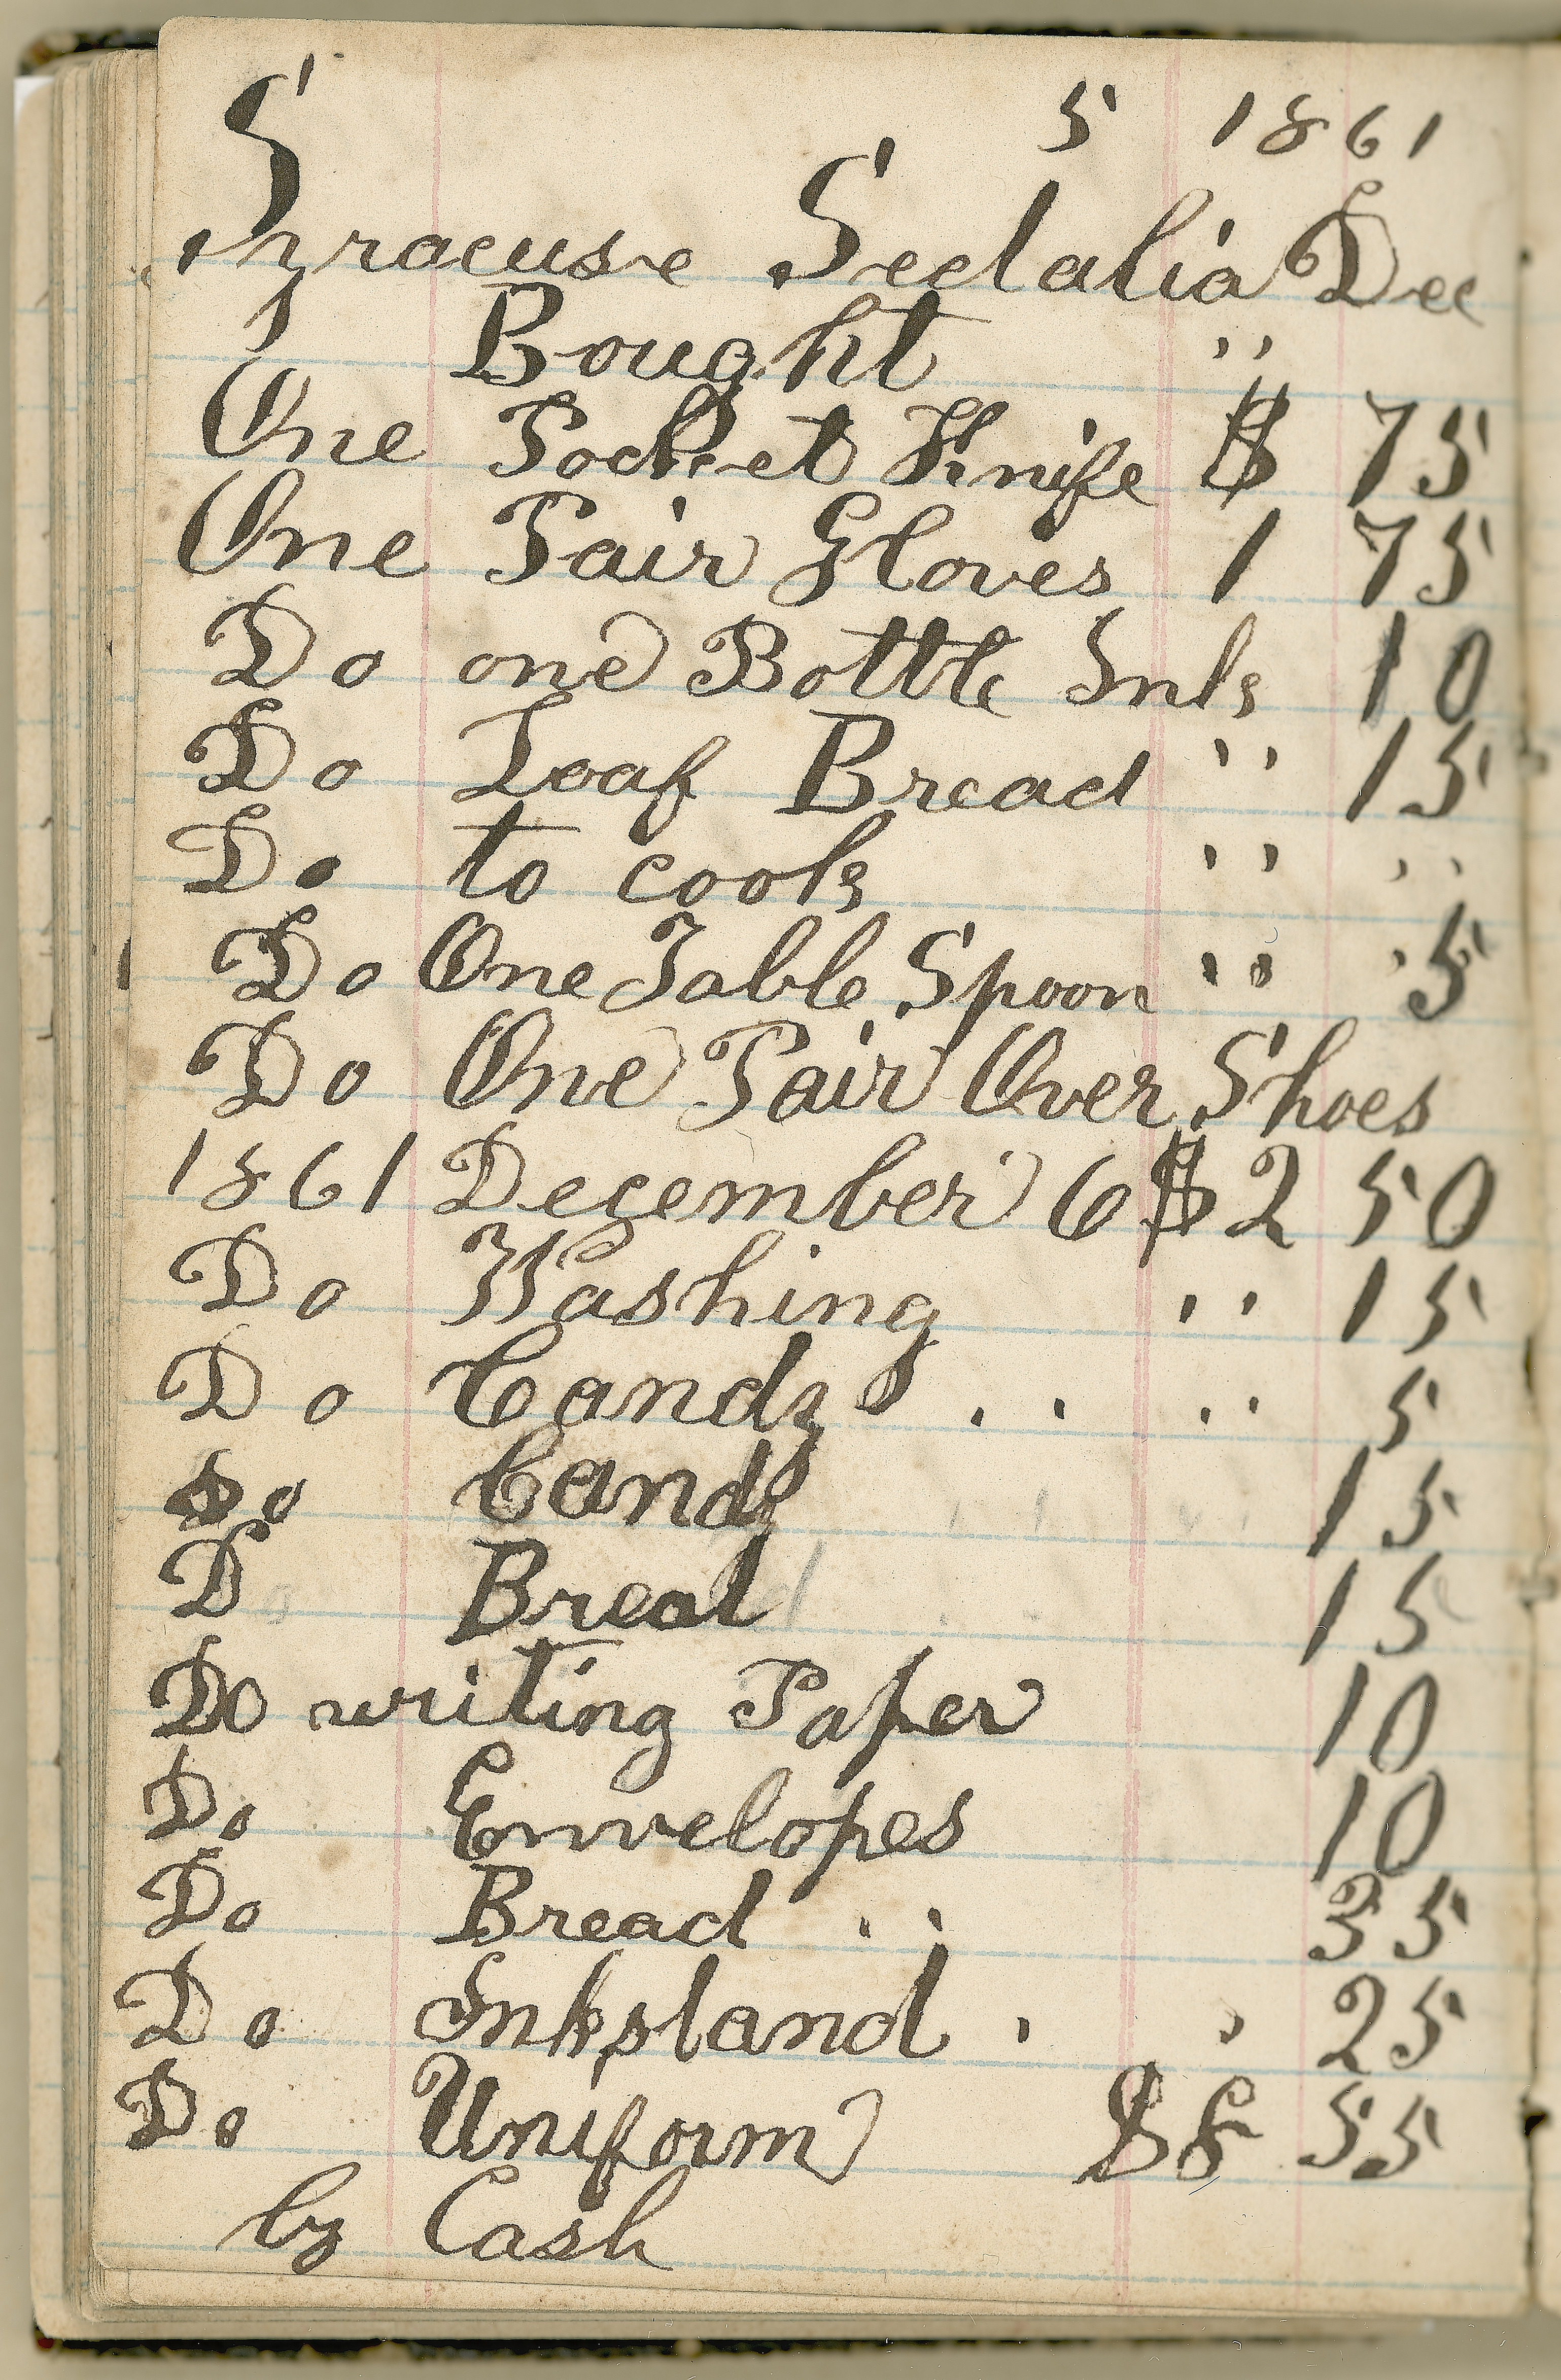 5 1861
Syracuse Sedalia Dec
Bought "
One Pocket Knife $ 75
One Pair Gloves 1 75
Do one Bottle Ink 10
Do Loaf Bread " 15
Do to cook " "
Do One Table Spoon " " 5
Do One Pair Over Shoes
1861 December 6 $2 50
Do Washing " 15
Do Candy . . . . 5
Do Candy 15
D Bread 15
Do writing Paper 10
Do Envelopes 10
Do Bread . . 35
Do Inkstand 25
Do Uniform $8 55
by Cash